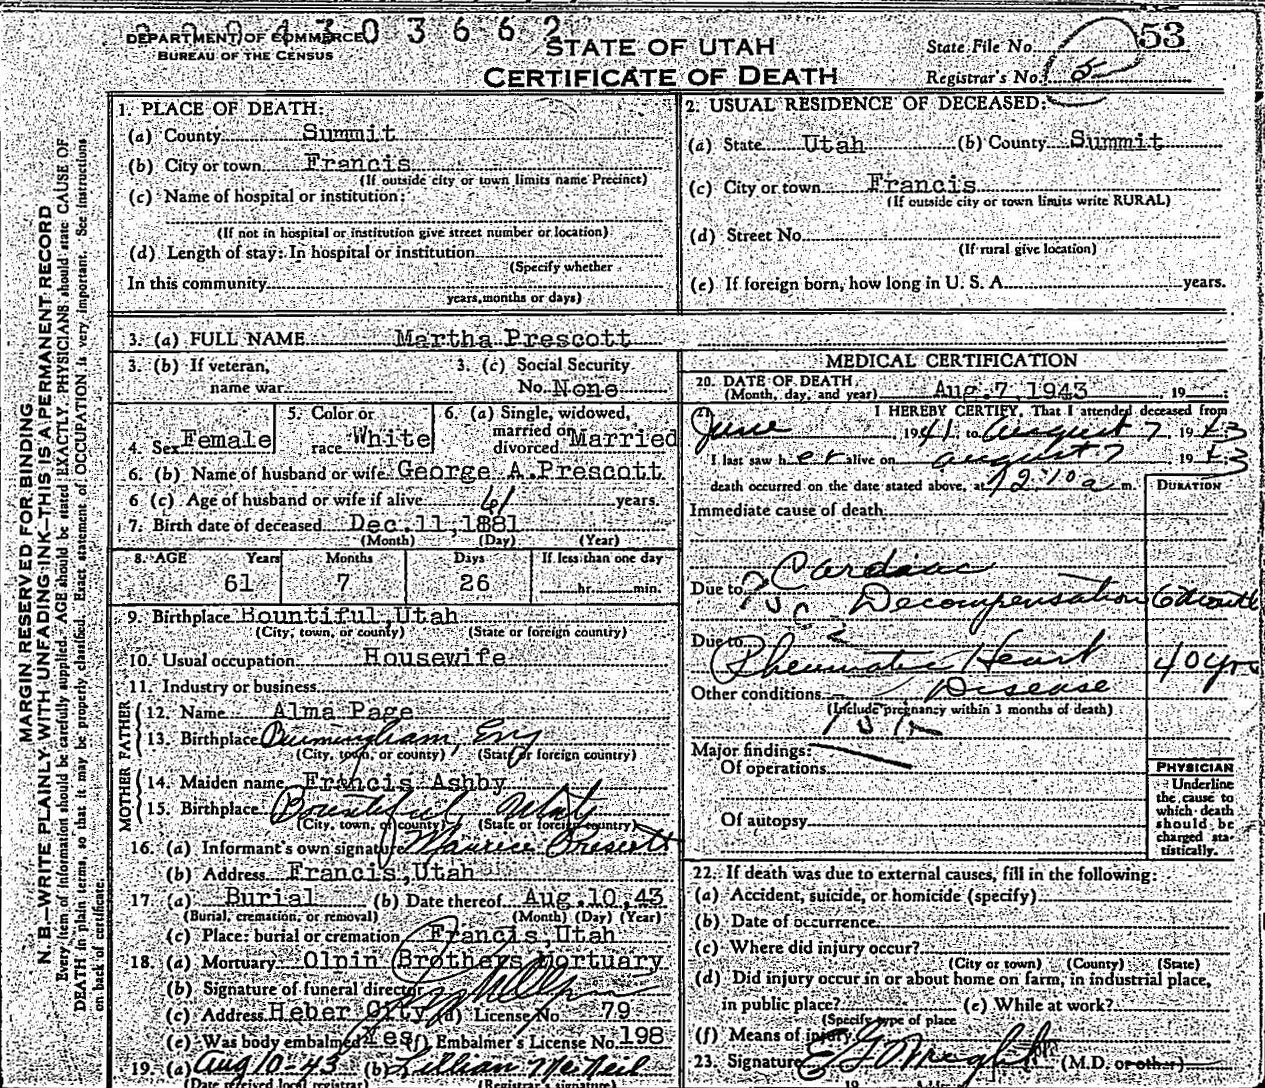 DEPARTMENT OF COMMERCE
BUREAU OF THE CENSUS
STATE OF UTAH
CERTIFICATE OF DEATH
State File No. 53
Registrar's No. 5
MARGIN RESERVED FOR BINDING
N. B.—WRITE PLAINLY WITH UNFADING INK—THIS IS A PERMANENT RECORD
Every item of information should be carefully supplied. AGE should be stated EXACTLY. PHYSICIANS should state CAUSE OF
DEATH in plain terms, so that it may be properly classified. Exact statement of OCCUPATION is very important. See instructions
on back of certificate.
1. PLACE OF DEATH:
(a) County Summit
(b) City or town Francis
(If outside city or town limits name Precinct)
(c) Name of hospital or institution:
(If not in hospital or institution give street number or location)
(d) Length of stay: In hospital or institution
(Specify whether
In this community
years, months or days)
2. USUAL RESIDENCE OF DECEASED:
(a) State Utah (b) County Summit
(c) City or town Francis
(If outside city or town limits write RURAL)
(d) Street No.
(If rural give location)
(e) If foreign born, how long in U. S. A. years.
3. (a) FULL NAME Martha Prescott
3. (b) If veteran, name war
3. (c) Social Security No. None
4. Sex Female
5. Color or race White
6. (a) Single, widowed, married or divorced Married
6. (b) Name of husband or wife George A. Prescott
6 (c) Age of husband or wife if alive 61 years.
7. Birth date of deceased Dec. 11, 1881
(Month) (Day) (Year)
8. AGE Years Months Days If less than one day
61 7 26 hr. min.
9. Birthplace Bountiful, Utah
(City, town, or county) (State or foreign country)
10. Usual occupation Housewife
11. Industry or business
FATHER
12. Name Alma Page
13. Birthplace Burmingham, Eng
(City, town, or county) (State or foreign country)
MOTHER
14. Maiden name Francis Ashby
15. Birthplace Bountiful Utah
(City, town, or county) (State or foreign country)
16. (a) Informant's own signature Maurice Prescott
(b) Address Francis, Utah
17. (a) Burial (b) Date thereof Aug. 10, 43
(Burial, cremation, or removal) (Month) (Day) (Year)
(c) Place: burial or cremation Francis, Utah
18. (a) Mortuary Olpin Brothers Mortuary
(b) Signature of funeral director
(c) Address Heber City (d) License No. 79
(e) Was body embalmed Yes (f) Embalmer's License No. 198
19. (a) Aug 10-43 (b) Lillian McNeil
(Date received local registrar) (Registrar's signature)
MEDICAL CERTIFICATION
20. DATE OF DEATH
(Month, day, and year) Aug. 7, 1943 19
21. I HEREBY CERTIFY, That I attended deceased from
June, 1941 to August 7 1943
I last saw her alive on August 7 1943
death occurred on the date stated above, at 12:10 a m.
DURATION
Immediate cause of death
Cardiac
Due to Decompensation 6 month
Due to
Rheumatic Heart 40 yrs
Other conditions Disease
(Include pregnancy within 3 months of death)
Major findings:
Of operations
Of autopsy
PHYSICIAN
Underline
the cause to
which death
should be
charged sta-
tistically.
22. If death was due to external causes, fill in the following:
(a) Accident, suicide, or homicide (specify)
(b) Date of occurrence
(c) Where did injury occur?
(City or town) (County) (State)
(d) Did injury occur in or about home on farm, in industrial place,
in public place? (e) While at work?
(Specify type of place
(f) Means of injury
23. Signature (M.D. or other)